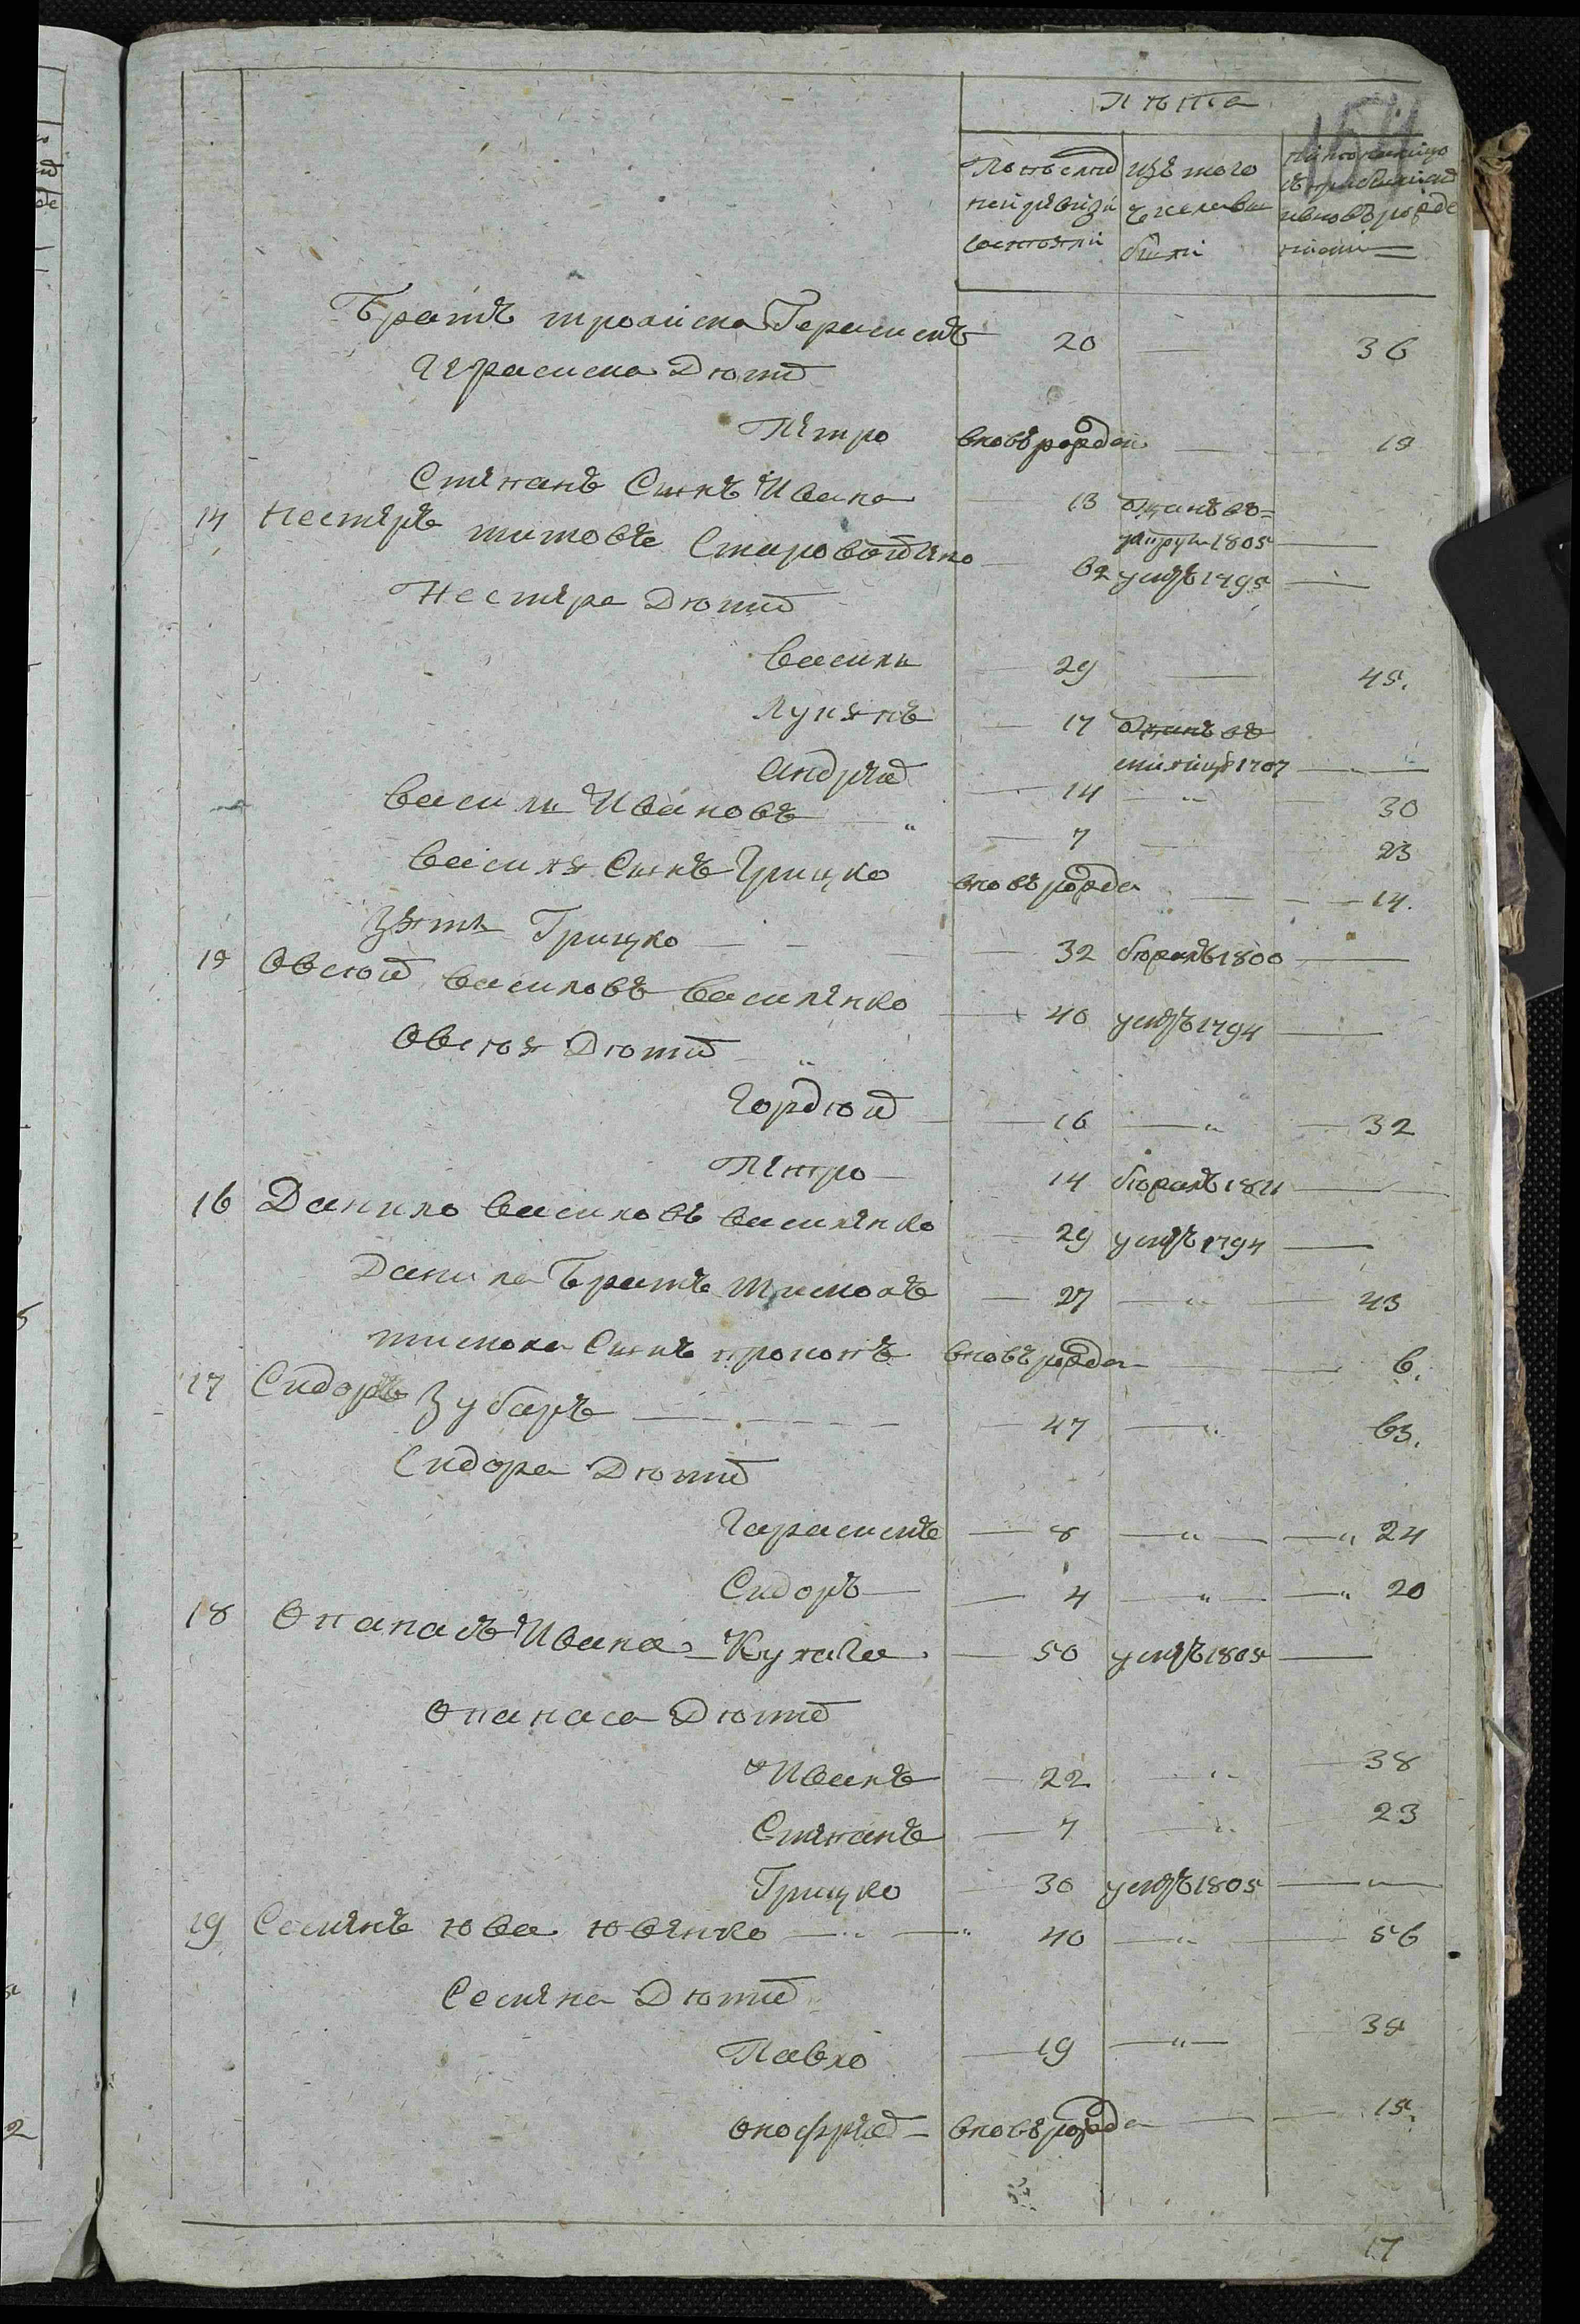 лѣта
154
По послѣд изъ того нынѣ налицо
ней ревизіи числа вы съ прибылыми
состояли были и вновь рожде
нными
Братъ трохима Герасимъ 20 — 36
Герасима Дѣти
Петро вновь рожден — 15
Степанъ Сынъ Ивана 13 отданъ въ
рекруты 1805 —
14 Нестеръ титовъ Старовойтенко 62 умръ 1795 —
Нестера Дѣти
Василь 29 — 45.
Лукянъ 17 отданъ въ
милицію 1807 —
Андрей 14 — 30
Василь Ивановъ 7 — 23
Василя Сынъ Грицко вновь рожде — 14.
Зять Грицко — 32 бѣгалъ 1800 —
15 Овсѣй Василовъ Василенко 40 умръ 1794 —
Овсѣя Дѣти
Гордѣй 16 — 32
Петро 14 бѣгалъ 1811 —
16 Данило Василовъ Василенко 29 умръ 1794 —
Данила Братъ Тимохъ 27 — 43
тимоха Сынъ прокопъ вновь рожде — 6.
17 Сидоръ Зубаръ — 47 — 63.
Сидора Дѣти
Гарасимъ 8 — 24
Сидоръ 4 — 20
18 Опанасъ Ивана Кулага 50 умръ 1805 —
Опанаса Дѣти
Иванъ 22 — 38
Степанъ 7 — 23
Грицко 30 умръ 1805 —
19 Семенъ юва ювенко — 40 — 56
Семена Дѣти
Павло 19 — 35
онофрей вновь рожде — 15.
17